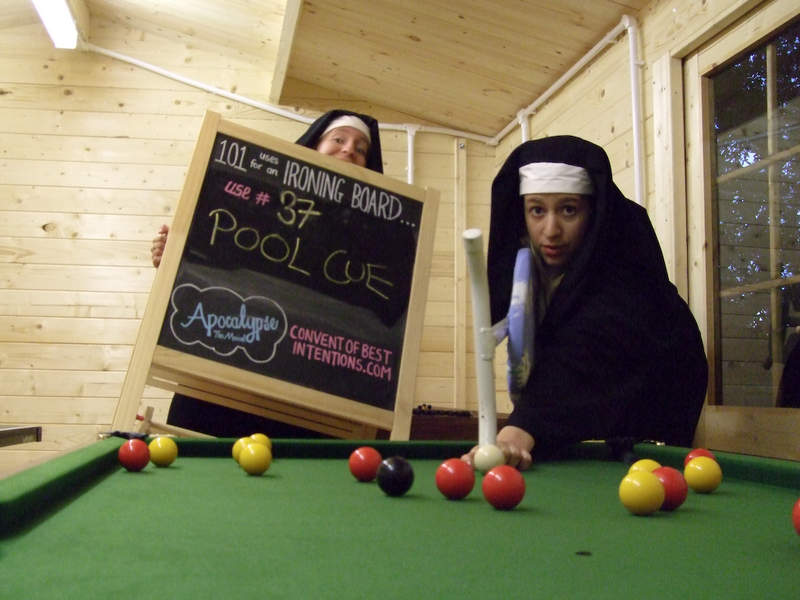 101 uses for an IRONING BOARD...
use # 37
POOL CUE
Apocalypse
The Musical
CONVENT OF BEST
INTENTIONS.COM